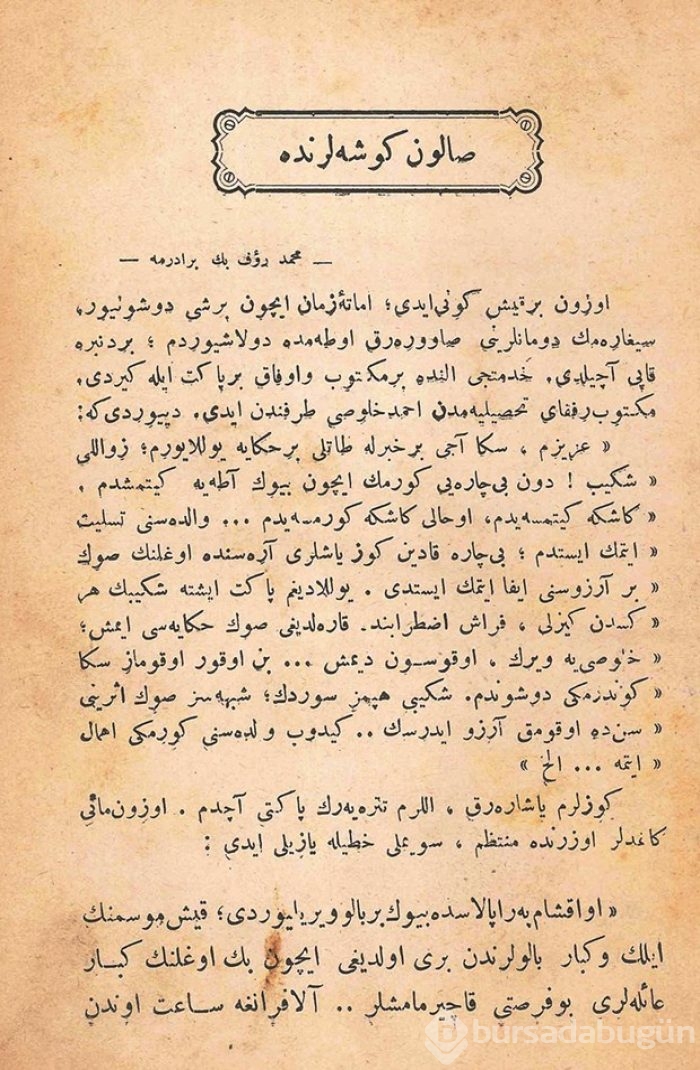 صالون كوشه‌لرنده
— محمد رؤف بك برادرمه —
اوزون برقيش كونى‌ايدى؛ اماتهٔ زمان ايچون برشى دوشونيور،
سيغاره‌مك دومانلرينى صاووره‌رق اوطه‌مده دولاشيوردم ؛ بردنبره
قاپى آچيلدى. خدمتجى النده برمكتوب واوفاق برپاكت ايله كيردى.
مكتوب رفقاى تحصيليه‌مدن احمد خلوصى طرفندن ايدى. دييوردى‌كه:
« عزيزم ، سكا آجى برخبرله طاتلى برحكايه يوللايورم؛ زواللى
« شكيب ! دون بى‌چاره‌يى كورمك ايچون بيوك آطه‌يه كيتمشدم .
« كاشكه كيتمسه‌يدم، اوحالى كاشكه كورمسه‌يدم ... والده‌سنى تسليت
« ايتمك ايستدم ؛ بى‌چاره قادين كوز ياشلرى آره‌سنده اوغلنك صوك
« بر آرزوسنى ايفا ايتمك ايستدى . يوللاديغم پاكت ايشته شكيبك هر
« كسدن كيزلى ، فراش اضطرابنده قاره‌لديغى صوك حكايه‌سى ايمش؛
« خلوصى‌يه ويرك ، اوقوسون ديمش ... بن اوقور اوقوماز سكا
« كوندرمكى دوشوندم. شكيبى هپمز سوردك؛ شبهه‌سز صوك اثرينى
« سن‌ده اوقومق آرزو ايدرسك .. كيدوب والده‌سنى كورمكى اهمال
« ايتمه ... الخ »
كوزلرم ياشاره‌رق ، اللرم تتره‌يه‌رك پاكتى آچدم . اوزون مائى
كاغدلر اوزرنده منتظم ، سويملى خطيله يازيلى ايدى :
« اواقشام په‌راپالاسده بيوك بربالو ويريليوردى؛ قيش موسمنك
ايلك وكبار بالولرندن برى اولديغى ايچون بك اوغلنك كبار
عائله‌لرى بوفرصتى قاچيرمامشلر .. آلافرانغه ساعت اوندن
bursadabugün